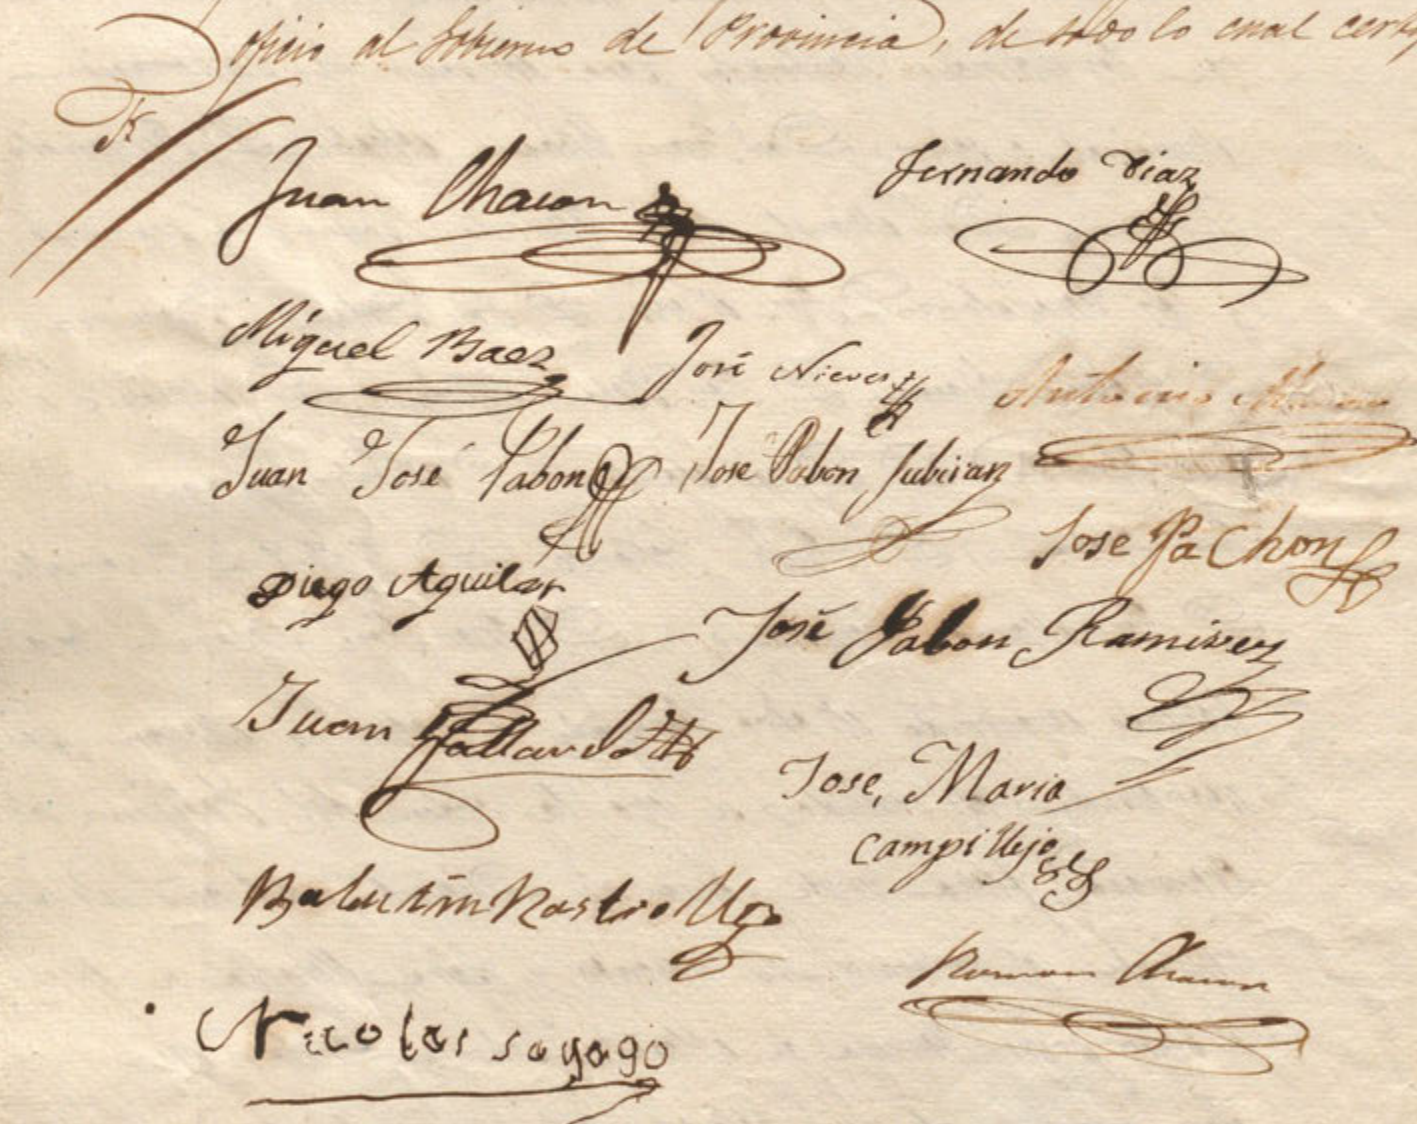 oficio al Gobierno de Provincia, de todo lo cual
Juan Chacon
Fernando Diaz
Miguel Baez
José Nieves
Antonio
Juan José Pabon
Jose Pabon Jubiran
Jose Pachon
Diego Aguilar
José Pabon Ramirez
Juan Gallardo
Jose, Maria
Campillejo
Balutin Rastrollo
Roman Chacon
Nicolas sayago